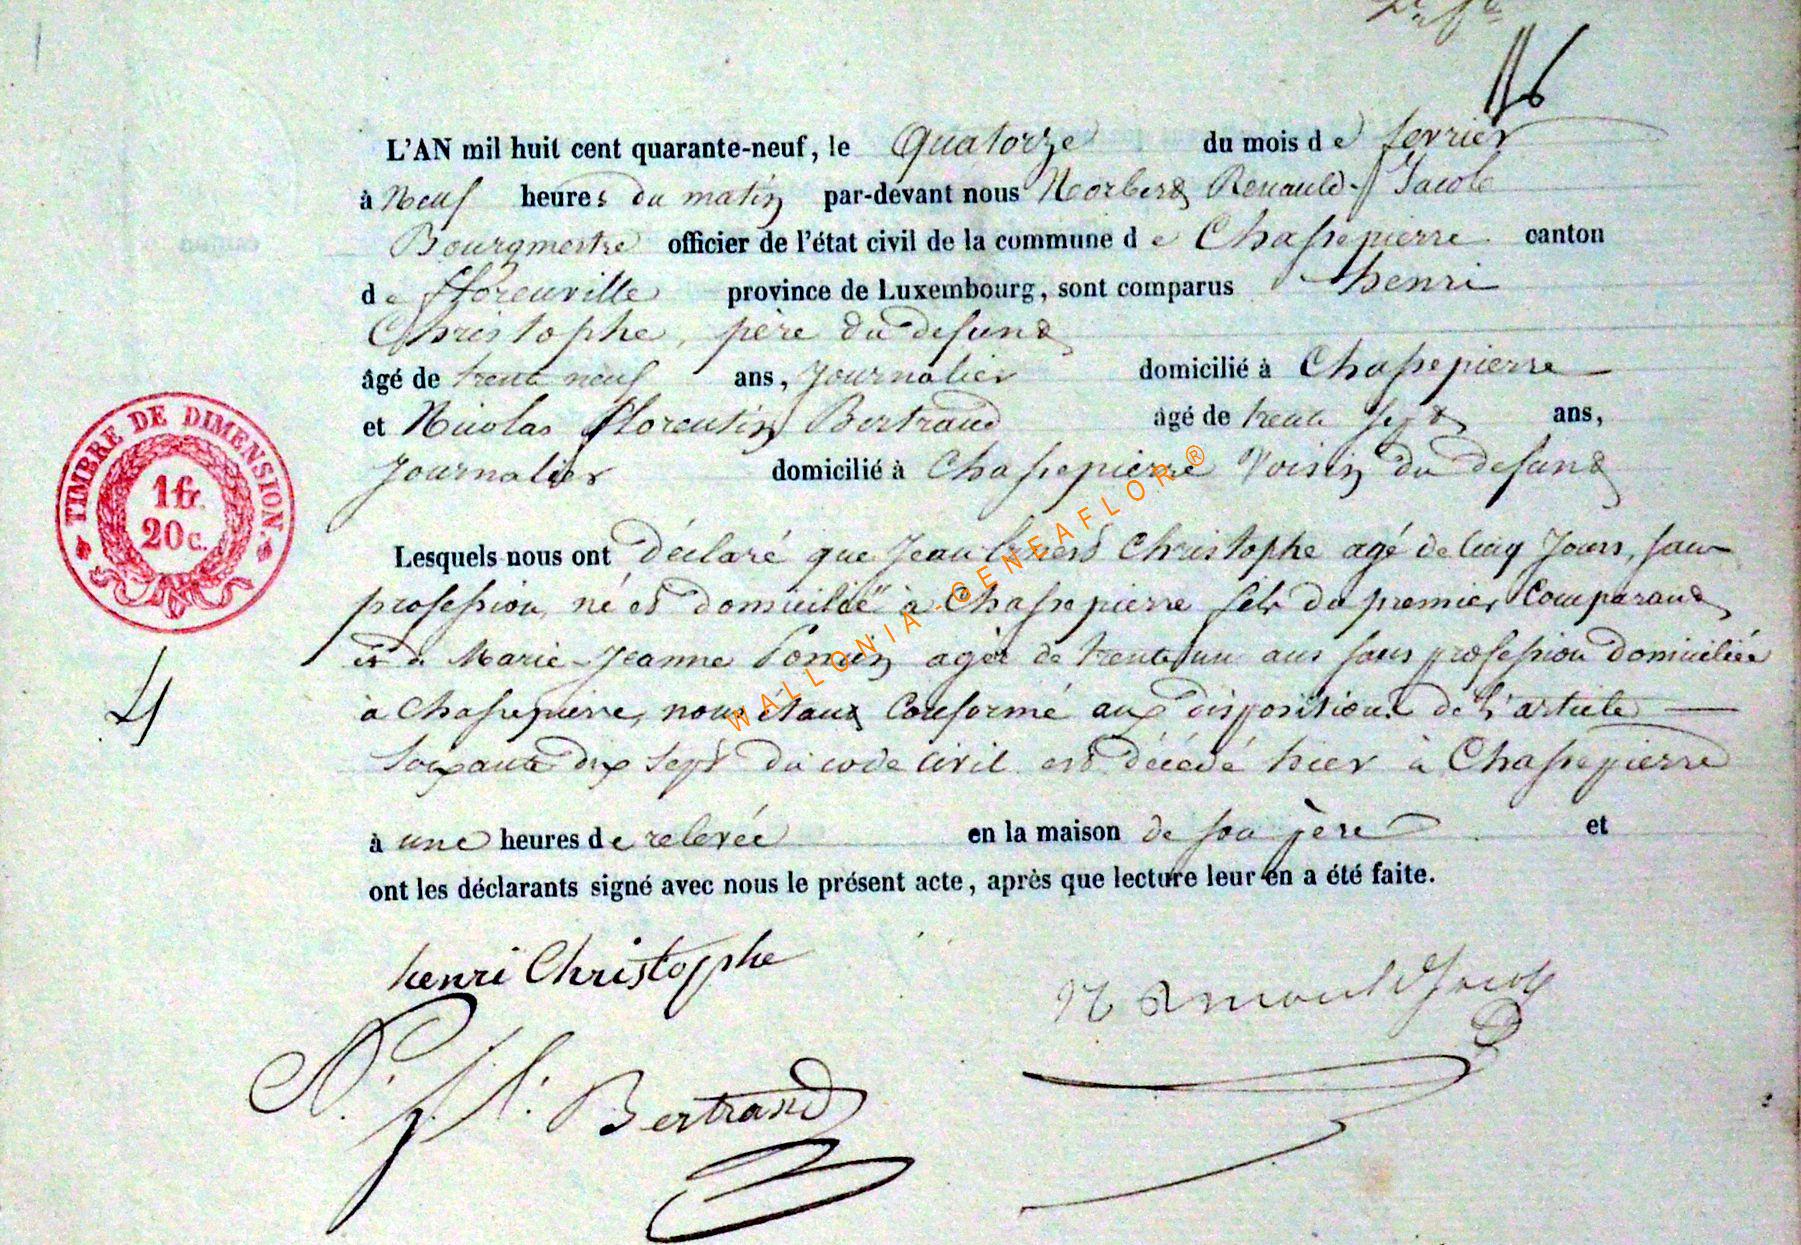 116
L'AN mil huit cent quarante-neuf, le Quatorze du mois de fevrier
à Neuf heures du matin par-devant nous Norbert Renauld Jacob
Bourgmestre officier de l'état civil de la commune de Chassepierre canton
de florenville province de Luxembourg, sont comparus henri
Christophe, père du defunt
âgé de trente neuf ans, Journalier domicilié à Chassepierre
et Nicolas florentin Bertrand âgé de trente sept ans,
Journalier domicilié à Chassepierre Voisin du defunt
Lesquels nous ont déclaré que Jean Christophe agé de Cinq Jours, sans
profession, né et domicilié à Chassepierre fils du premier Comparant
et de Marie-Jeanne agée de trente un ans sans profession domiciliée
à Chassepierre, nous étant Conformé aux dispositions de l'article
soixante dix sept du code civil est décédé hier à Chassepierre
à une heures de relevée en la maison de son père et
ont les déclarants signé avec nous le présent acte, après que lecture leur en a été faite.
TIMBRE DE DIMENSION.
1 fr.
20 c.
4
henri Christophe
N. f. Bertrand
WALLONIA-GENEAFLOR®